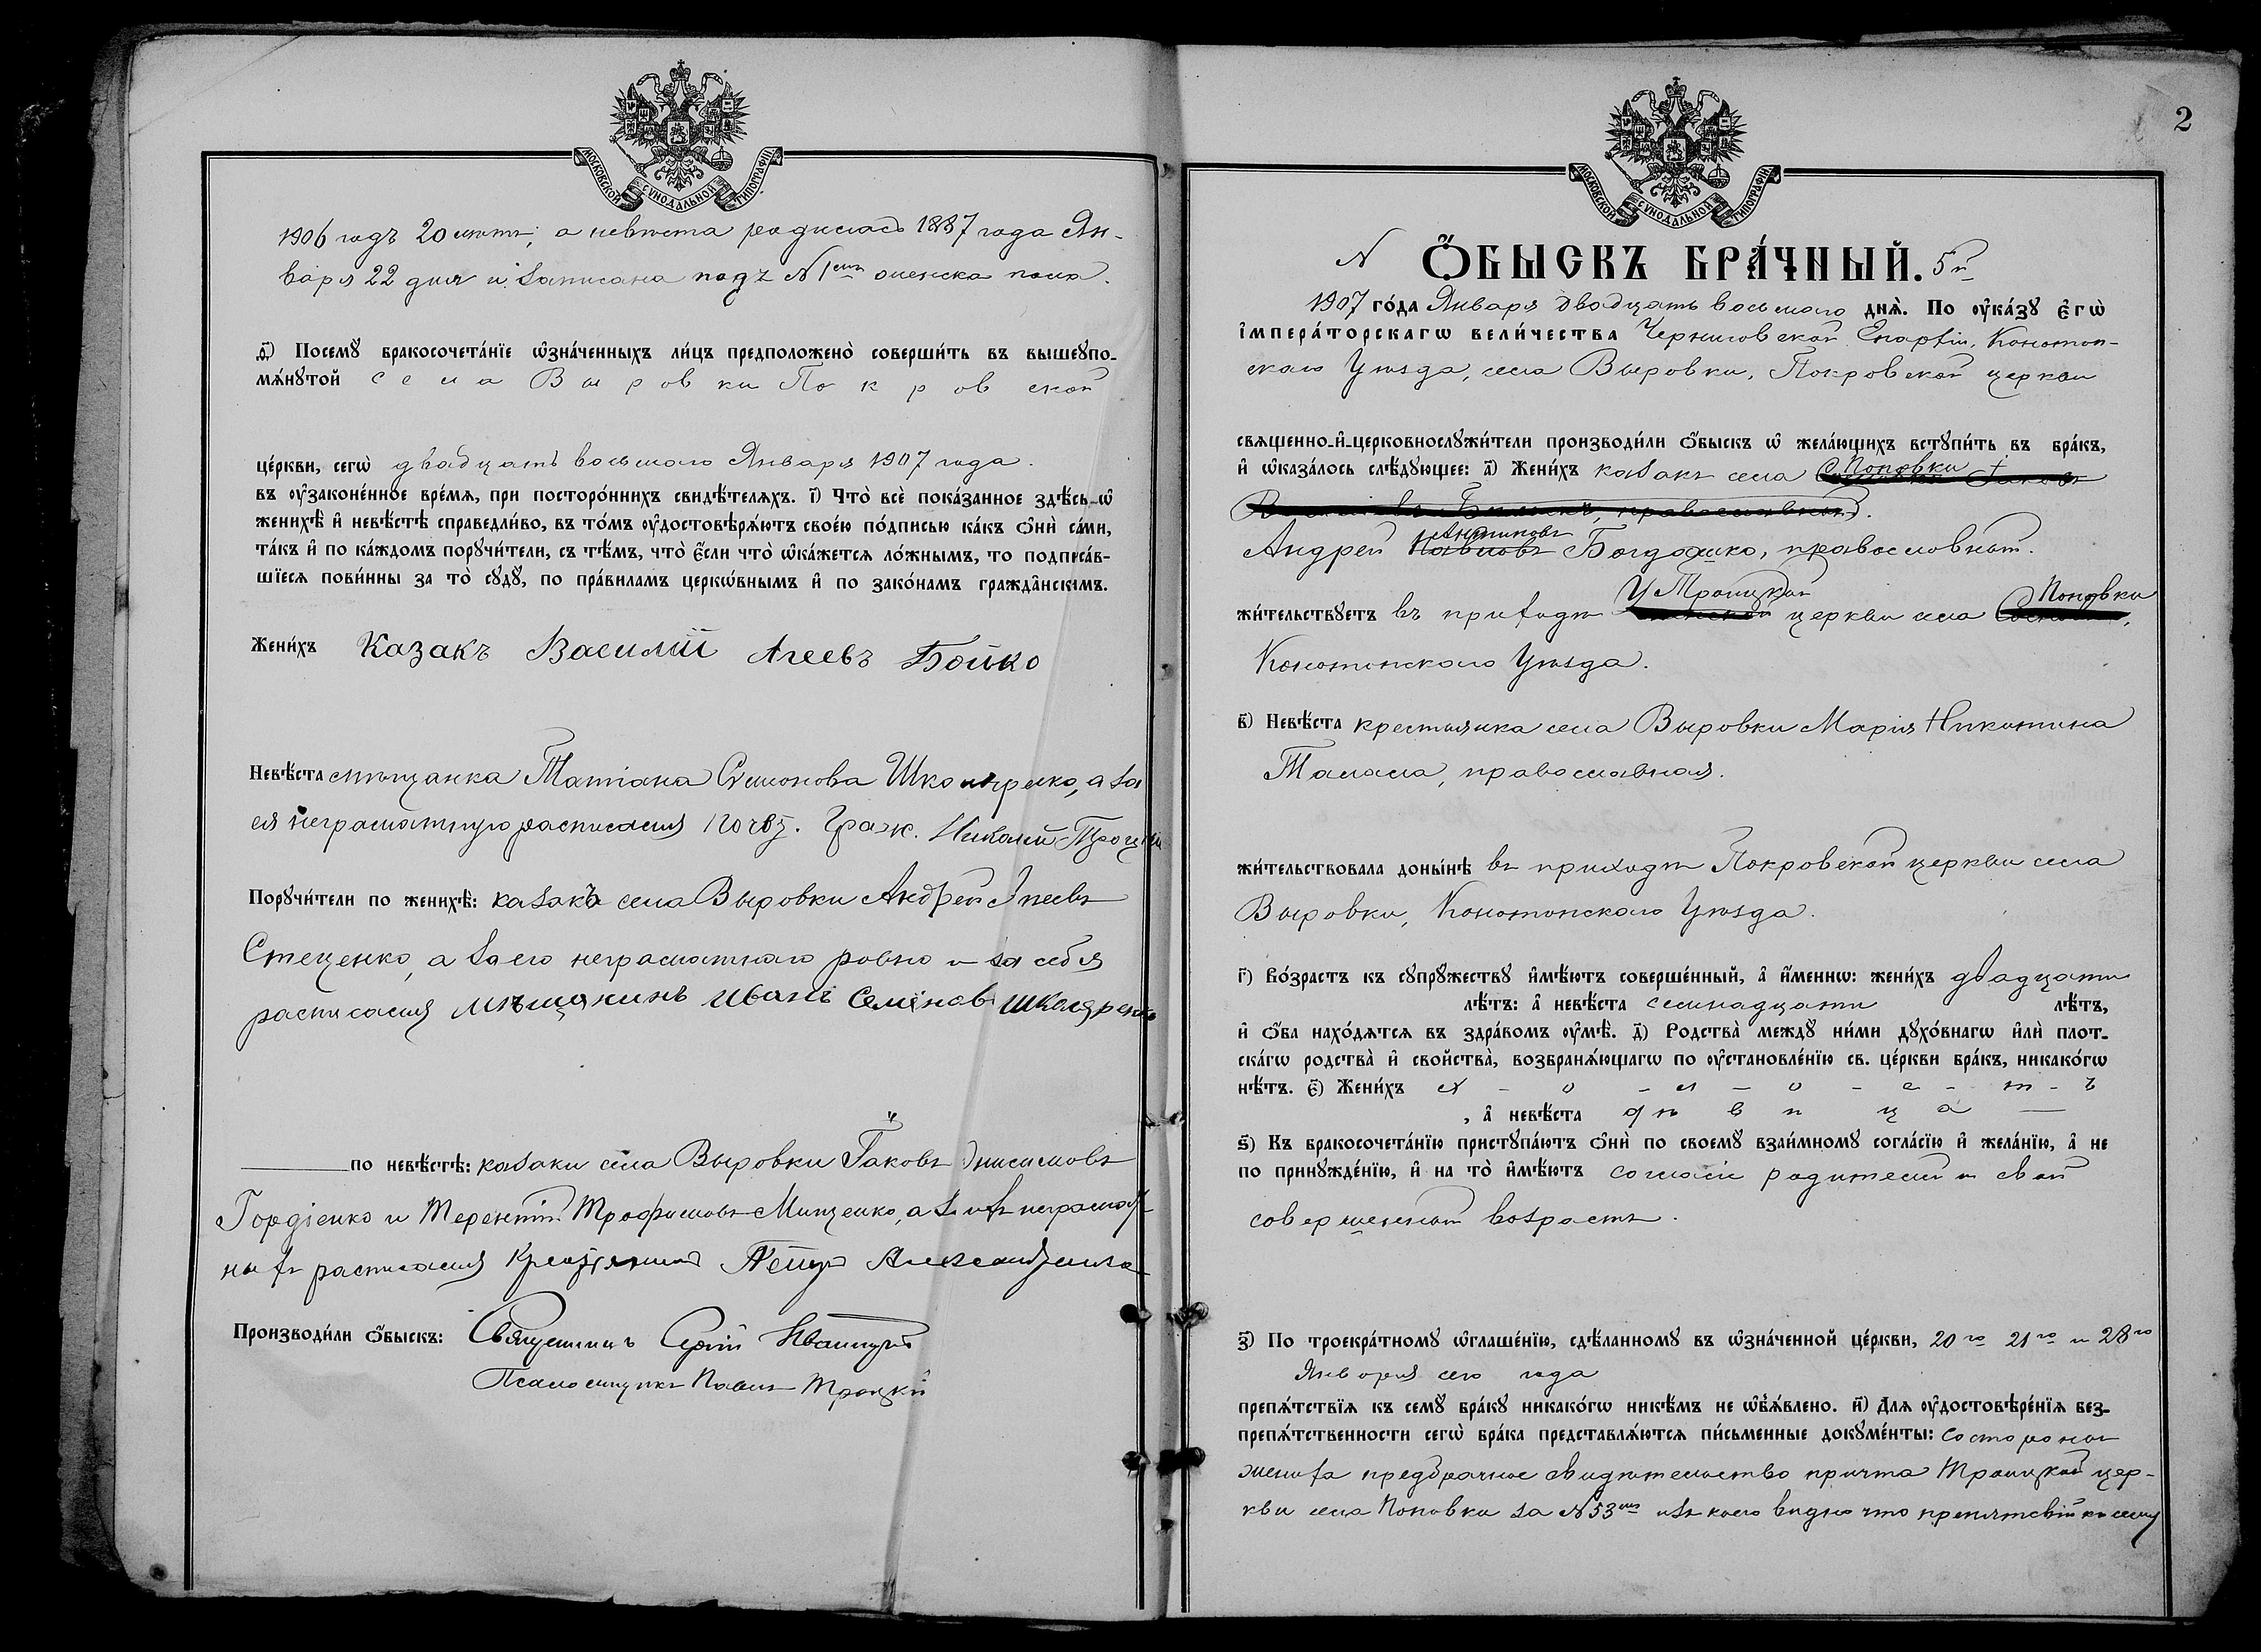 МОСКОВСКОЙ СѴНОДАЛЬНОЙ ТИПОГРАФІИ
1906 годъ 20 лѣтъ; а невѣста родилась 1887 года Ян-
варя 22 дня и записана подъ N 1мъ женска пола.
ѳ҃) Посемꙋ̀ бракосочета́нїе ѡ҆зна́ченныхъ ли́цъ предположено̀ соверши́ть въ вышеꙋпо-
мѧ́нꙋтой села Выровки Покровской
це́ркви, сегѡ̀ двадцать восьмого Января 1907 года.
въ ᲂу҆законе́нное вре́мѧ, при посторо́ннихъ свидѣ́телѧхъ. і҃) Что̀ всѐ пока́занное здѣ́сь ѡ҆
женихѣ̀ и҆ невѣ́стѣ справедли́во, въ то́мъ ᲂу҆достовѣрѧ́ютъ свое́ю по́дписью ка́къ ѻ҆нѝ са́ми,
та́къ и҆ по ка́ждомъ порꙋчи́тели, съ тѣ́мъ, что̀ є҆́сли что̀ ѡ҆ка́жетсѧ ло́жнымъ, то подписа́в-
шїесѧ пови́нны за то̀ сꙋдꙋ̀, по пра́виламъ церкѡ́внымъ и҆ по зако́намъ гражда̑нскимъ.
Жени́хъ Казакъ Василій Агеевъ Бойко
Невѣ́ста мѣщанка Татіана Симонова Школяренко, а за
ея неграмотную росписался почет. граж. Николай Троцкій
Порꙋчи́тели по женихѣ̀: казакъ села Выровки Андрей
Стеценко, а за его неграмотнаго ровно и за себя
расписался мѣщанинъ Иванъ Семеновъ Школяренко
по невѣ́стѣ: казаки села Выровки Іаковъ Онисимовъ
Гордіенко и Терентій Трофимовъ Мищенко, а за ихъ неграмот-
ныхъ расписался Крестянинъ Петръ
Производи́ли ѻ҆́быскъ: Священникъ Сергій
Псаломщикъ Павелъ Троцкій
МОСКОВСКОЙ СѴНОДАЛЬНОЙ ТИПОГРАФІИ
2
N Ѻ҆́БЫСКЪ БРА́ЧНЫЙ. 5й
1907 го́да Января двадцать восьмого днѧ̀. По ᲂу҆ка́зꙋ є҆гѡ̀
і҆мпера́торскагѡ вели́чества Черниговской Епархіи, Конотоп-
скаго Уѣзда, села Выровки, Покровской церкви
священно-и҆-церковнослꙋжи́тели производи́ли ѻ҆́быскъ ѡ҆ жела́ющихъ встꙋпи́ть въ бра́къ,
и҆ ѡ҆каза́лось слѣ́дꙋющее: а҃) Жени́хъ казакъ села Поповки
Андрей Антиповъ Богдашко, православный.
жи́тельствꙋетъ въ приходѣ Троицкой церкви села Поповки,
Конотопскаго Уѣзда.
в҃) Невѣ́ста крестьянка села Выровки Марія Никитина
Талала, православная.
жи́тельствовала доны́нѣ въ приходѣ Покровской церкви села
Выровки, Конотопскаго Уѣзда.
г҃) Во́зрастъ къ сꙋпрꙋ́жествꙋ и҆мѣ́ютъ соверше́нный, а҆ и҆́меннѡ: жени́хъ двадцати
лѣ́тъ: а҆ невѣ́ста семнадцати лѣ́тъ,
и҆ ѻ҆́ба нахо́дѧтсѧ въ здра́вомъ ᲂу҆мѣ̀. д҃) Родства̀ междꙋ̀ ни́ми дꙋхо́внагѡ и҆лѝ плот-
ска́гѡ родства̀ и҆ свойства̀, возбранѧ́ющагѡ по ᲂу҆становле́нїю св. це́ркви бра́къ, никако́гѡ
нѣ́тъ. є҃) Жени́хъ х - о - л - о - с - т - ъ
, а҆ невѣ́ста дѣвица —
ѕ҃) Къ бракосочета́нїю пристꙋпа́ютъ ѻ҆нѝ по своемꙋ̀ взаи́мномꙋ согла́сїю и҆ жела́нїю, а҆ не
по принꙋжде́нїю, и҆ на то̀ и҆мѣ́ютъ согласіе родителей и свой
совершенный возрастъ.
з҃) По троекра́тномꙋ ѡ҆глаше́нїю, сдѣ́ланномꙋ въ ѡ҆зна́ченной це́ркви, 20го 21го и 28го
Января сего года
препѧ́тствїѧ къ семꙋ̀ бра́кꙋ никако́гѡ никѣ́мъ не ѡ҆б̾ѧ́влено. и҃) Для ᲂу҆достовѣре́нїѧ без-
препѧ́тственности сегѡ̀ бра́ка представлѧ́ютсѧ пи́сьменные докꙋме́нты: со стороны
жениха предбрачное свидѣтельство причта Троицкой цер-
кви села Поповки за N 53мъ изъ коего видно что препятствій къ сему